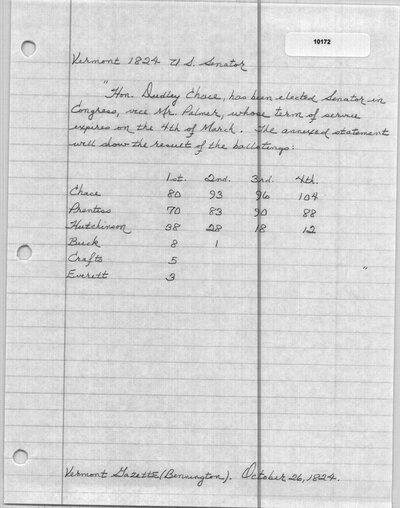 10172
Vermont 1824 U.S. Senator
"Hon. Dudley Chace, has been elected Senator in
Congress, vice Mr. Palmer, whose term of service
expires on the 4th of March. The annexed statement
will show the result of the ballotings:
1st. 2nd. 3rd. 4th.
Chace 80 93 96 104
Prentiss 70 83 90 88
Hutchinson 38 28 18 12
Buck 8 1
Crafts 5 "
Everett 3
Vermont Gazette (Bennington). October 26, 1824.